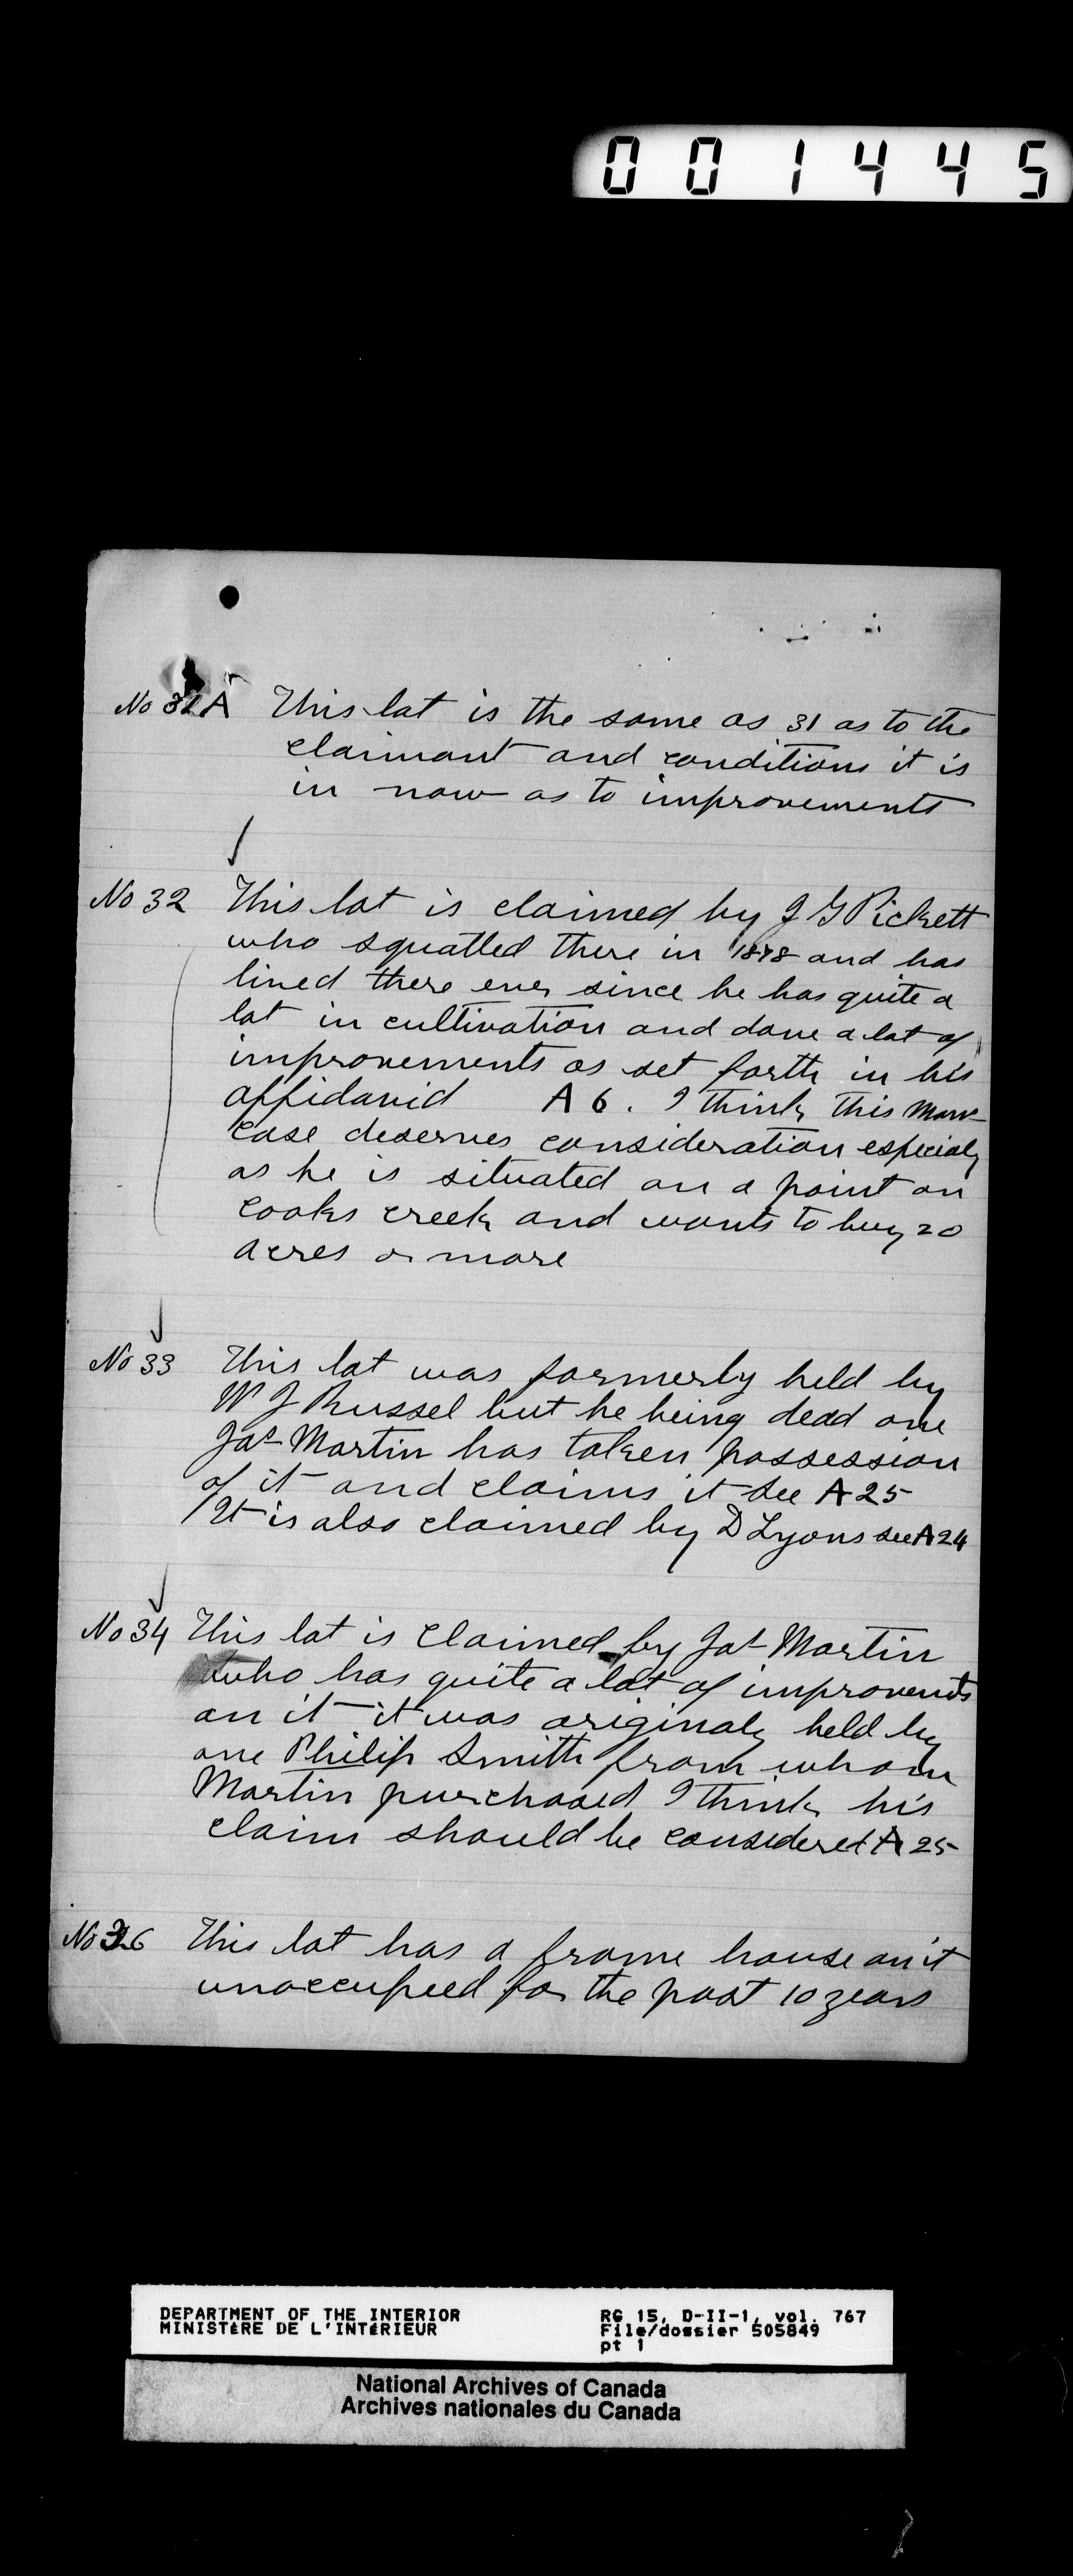 001445
No 31A This lot is the same as 31 as to the
claimant and conditions it is
in now as to improvements
No 32 This lot is claimed by J G Pickett
who squatled there in 1878 and has
lived there ever since he has quite a
lot in cultivation and done a lot of
improvements as set forth in his
affidavid A 6. I think this mans
case deserves consideration especialy
as he is situated on a point on
cooks creek and wants to buy 20
acres or more
No 33 This lot was formerly held by
W J Russel but he being dead one
Jas Martin has taken possession
of it and claims it see A 25
It is also claimed by D Lyons see A 24
No 34 This lot is claimed by Jas Martin
who has quite a lot of improvents
on it it was originaly held by
one Philip Smith from whom
Martin purchased I think his
claim should be considered A 25
No 36 This lot has a frame house on it
unoccupied for the past 10 years
DEPARTMENT OF THE INTERIOR RG 15, D-II-1, vol. 767
MINISTÈRE DE L'INTÉRIEUR File/dossier 505849
pt 1
National Archives of Canada
Archives nationales du Canada